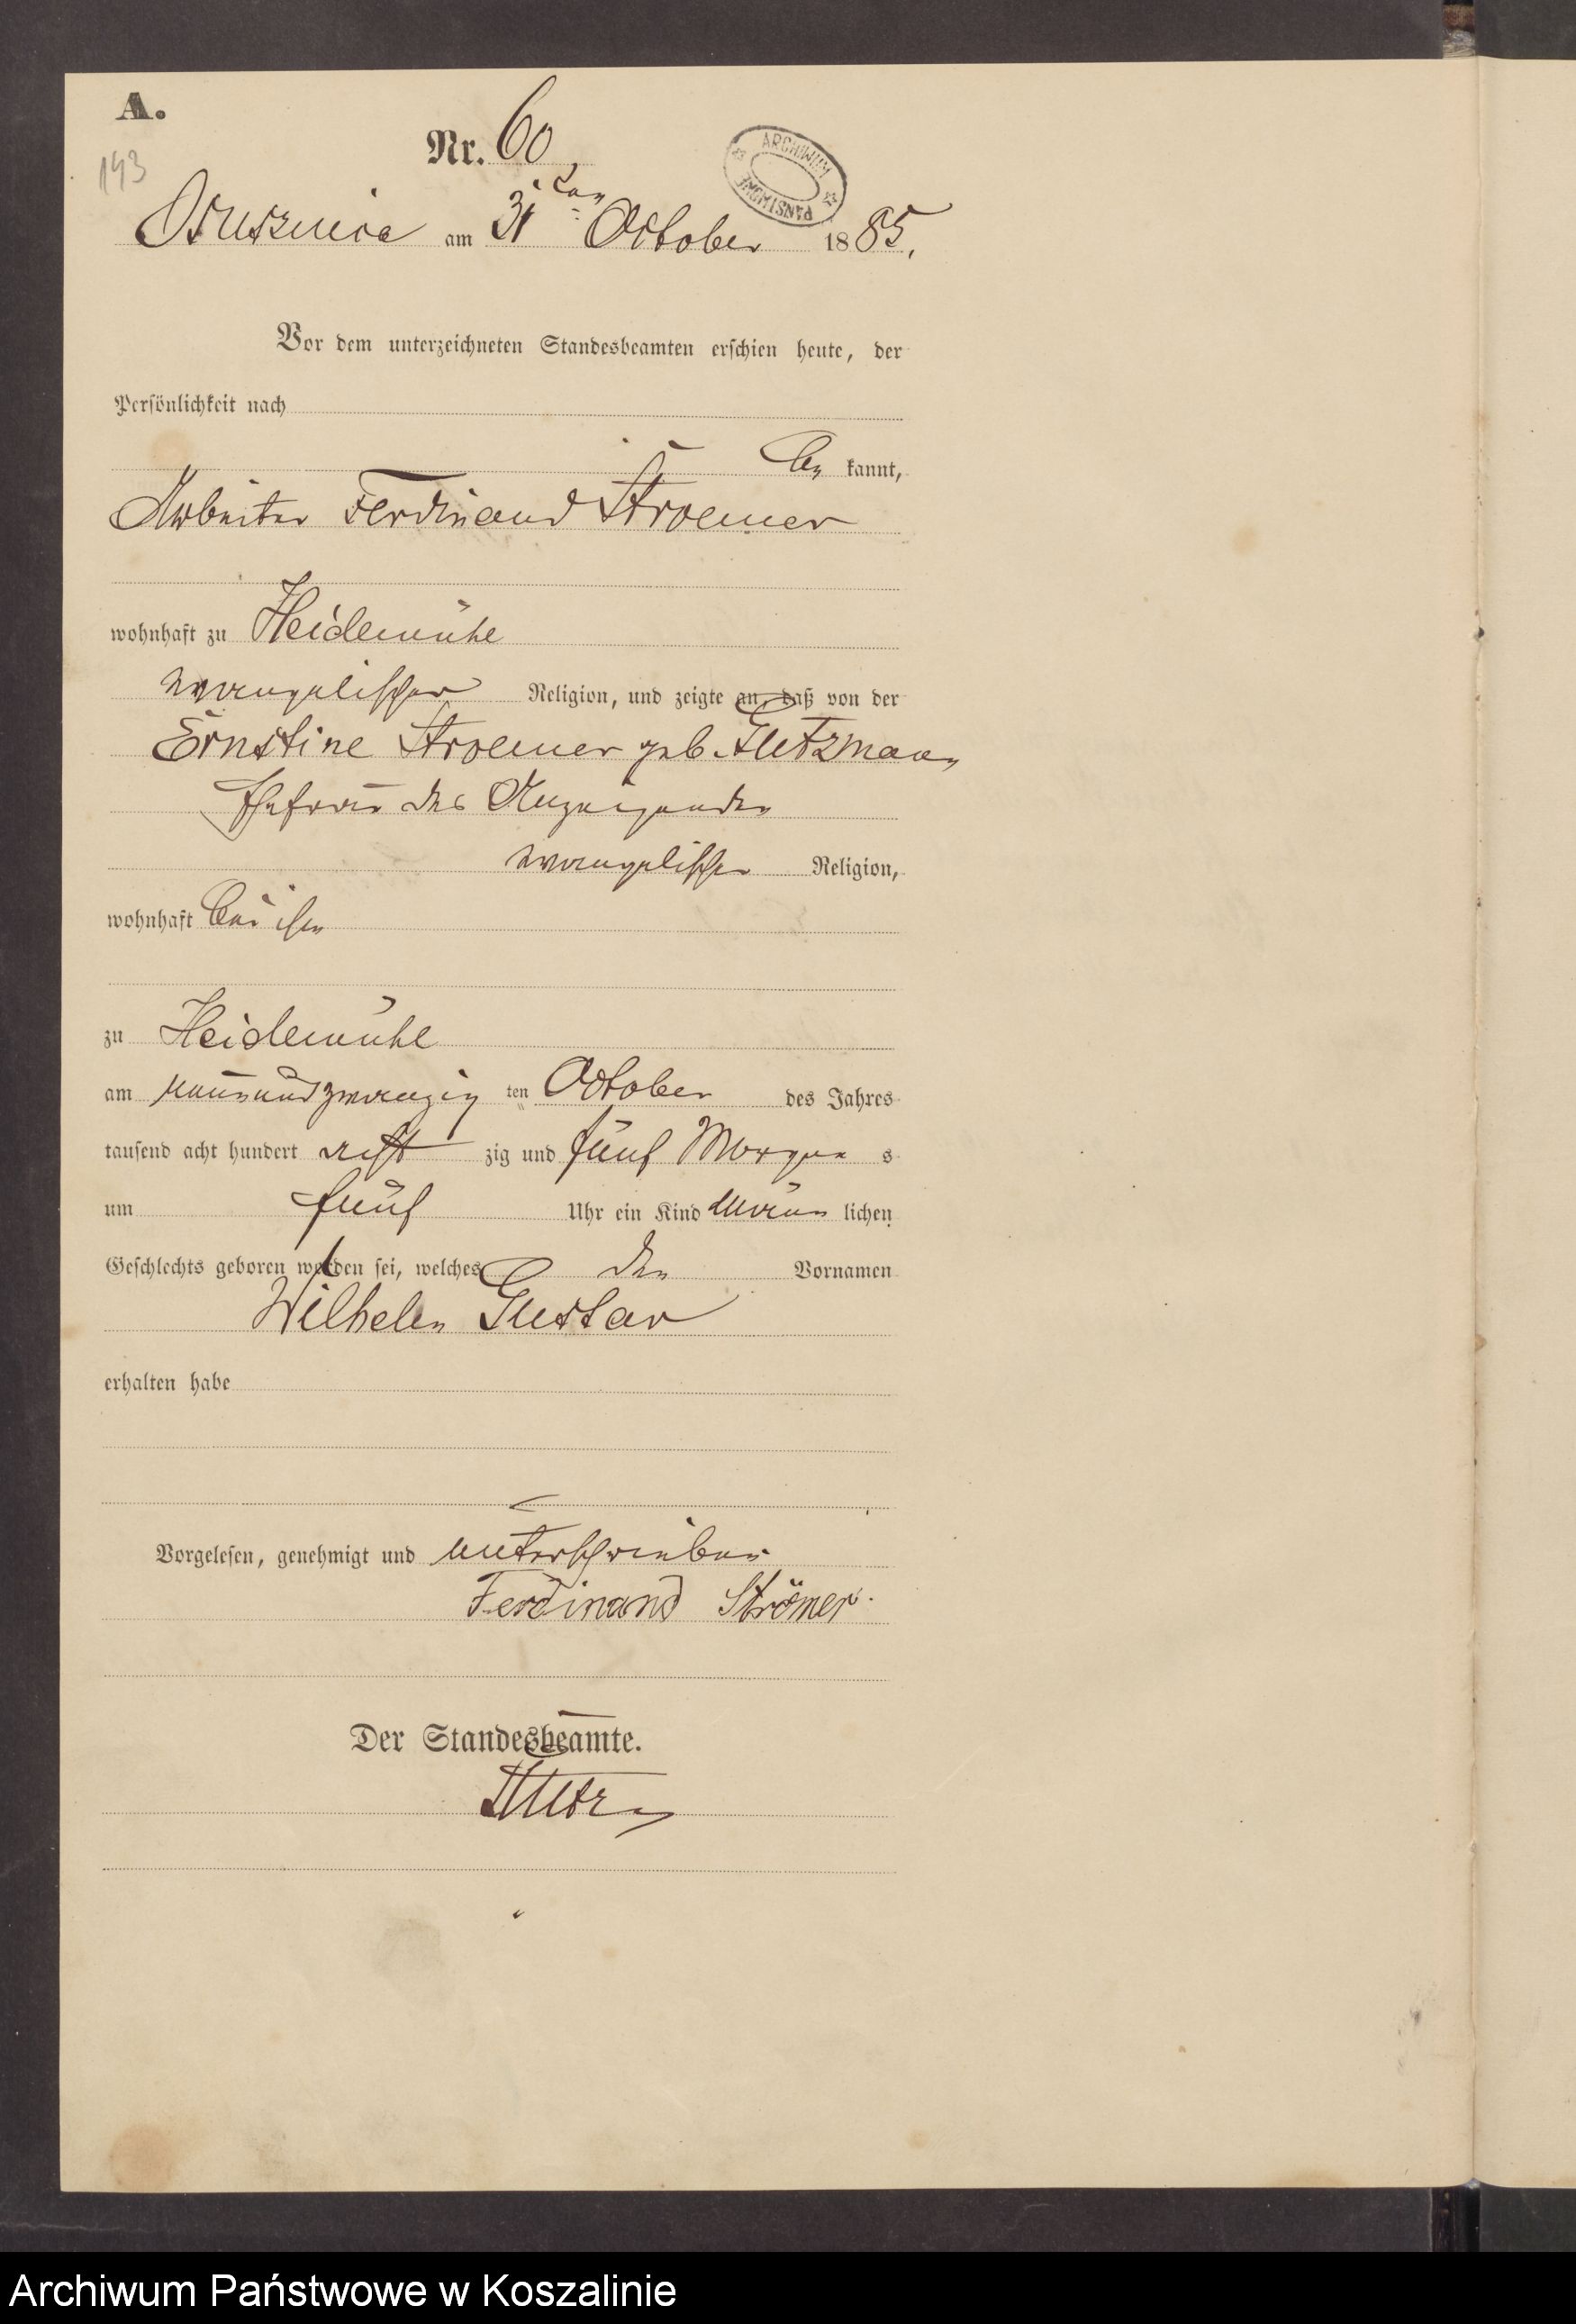 A.
143
Nr. 60.
ARCHIWUM PAŃSTWOWE
Osusznica am 31ten October 1885.
Vor dem unterzeichneten Standesbeamten erschien heute, der
Persönlichkeit nach
bekannt,
Arbeiter Ferdinand Stroemer
wohnhaft zu Heidemühle
evangelischer Religion, und zeigte an, daß von der
Ernstine Stroemer geb. Gutzmann
Ehefrau des Anzeigenden
evangelischer Religion,
wohnhaft bei ihm
zu Heidemühle
am neunundzwanzigten October des Jahres
tausend acht hundert achtzig und fünf Morgens
um fünf Uhr ein Kind männlichen
Geschlechts geboren worden sei, welches den Vornamen
Wilhelm Gustav
erhalten habe
Vorgelesen, genehmigt und unterschrieben
Ferdinand Strömer.
Der Standesbeamte.
Archiwum Państwowe w Koszalinie